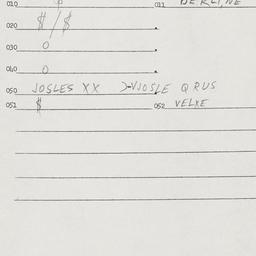 010 $ 011 BERLINE
020 $/$
030 0
040 0
050 JOSLES XX >-VJOSLE QRUS
051 $ 052 VELXE